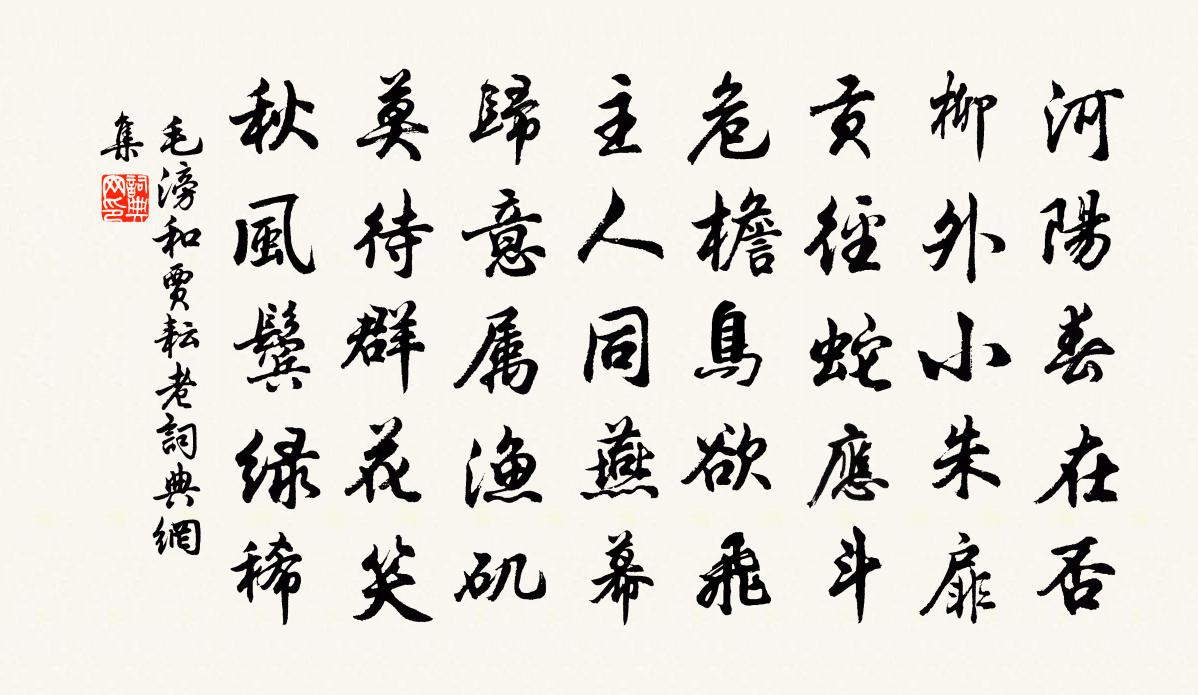 河陽春在否
柳外小朱扉
貢徑蛇應斗
危檐鳥欲飛
主人同燕幕
歸意属漁矶
莫待群花笑
秋風鬓緑稀
毛滂和賈耘老詞典網
集
詞典
网印